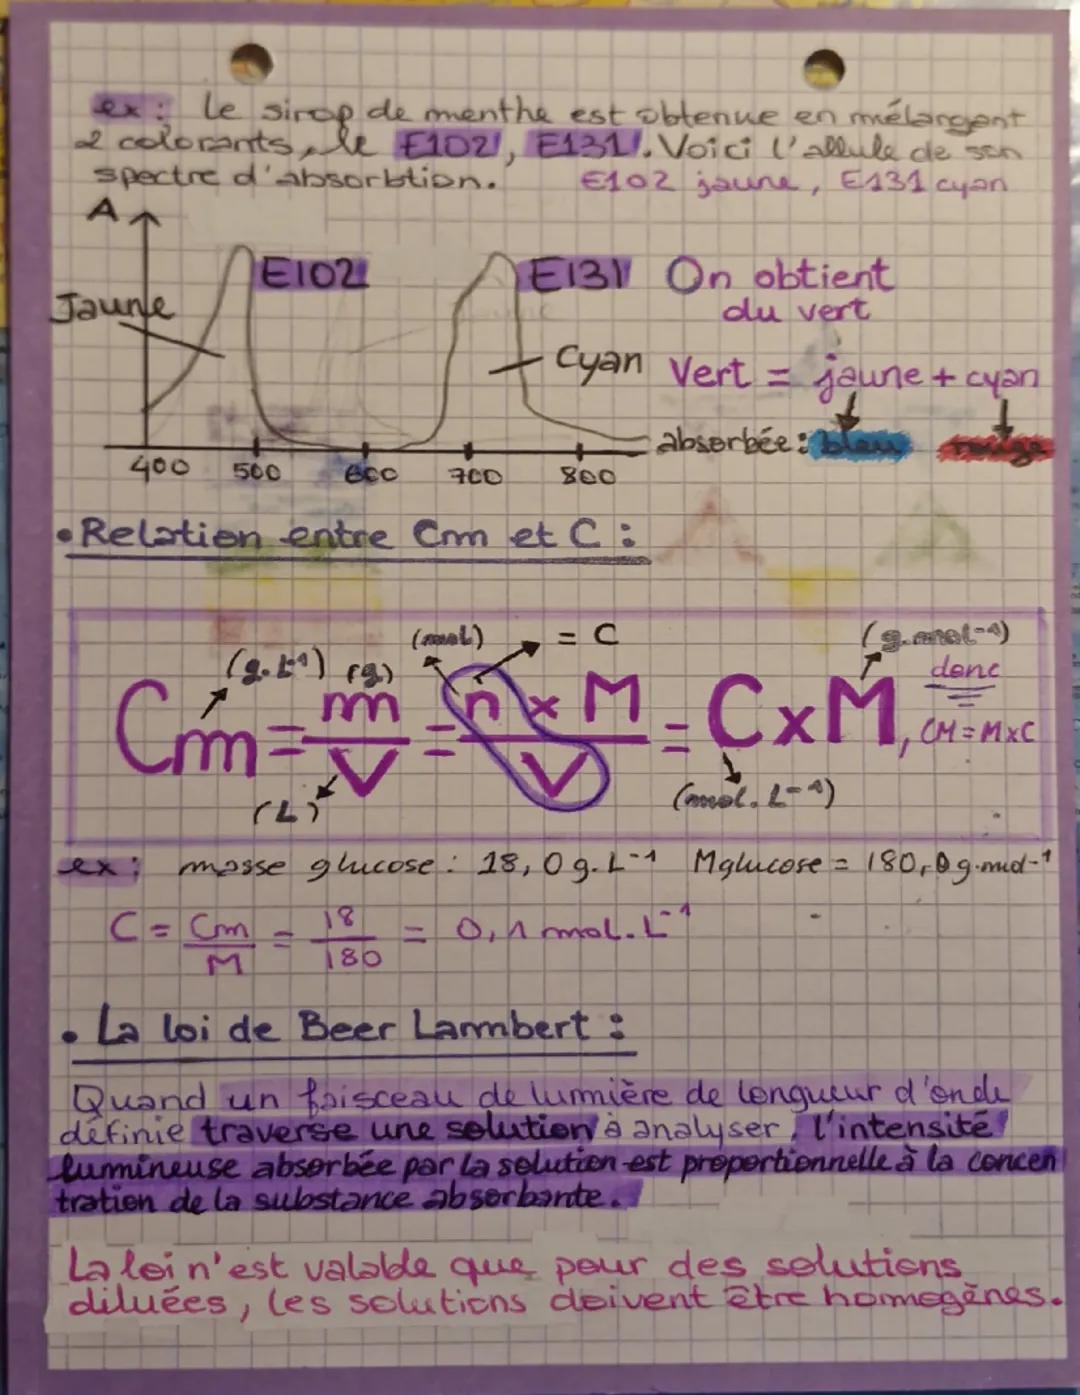 ex : Le sirop de menthe est obtenue en mélangent
2 colorants, le E102, E131. Voici l'allule de son
spectre d'absorbtion. E102 jaune, E131 cyan
A
E102 E131 On obtient
Jaune du vert
Cyan Vert = jaune + cyan
absorbée : bleu rouge
400 500 600 700 800
• Relation entre Cm et C :
(mol) = C (g.mol-1)
(g.L-1) (g) donc
Cm = m/V = n x M/V = C x M, CM = M x C
(L) (mol.L-1)
ex : masse glucose : 18,0 g.L-1 Mglucose = 180,0 g.mol-1
C = Cm/M = 18/180 = 0,1 mol.L-1
• La loi de Beer Lambert :
Quand un faisceau de lumière de longueur d'onde
définie traverse une solution à analyser, l'intensité
lumineuse absorbée par la solution est proportionnelle à la concen
tration de la substance absorbante.
La loi n'est valable que pour des solutions
diluées, les solutions doivent être homogènes.